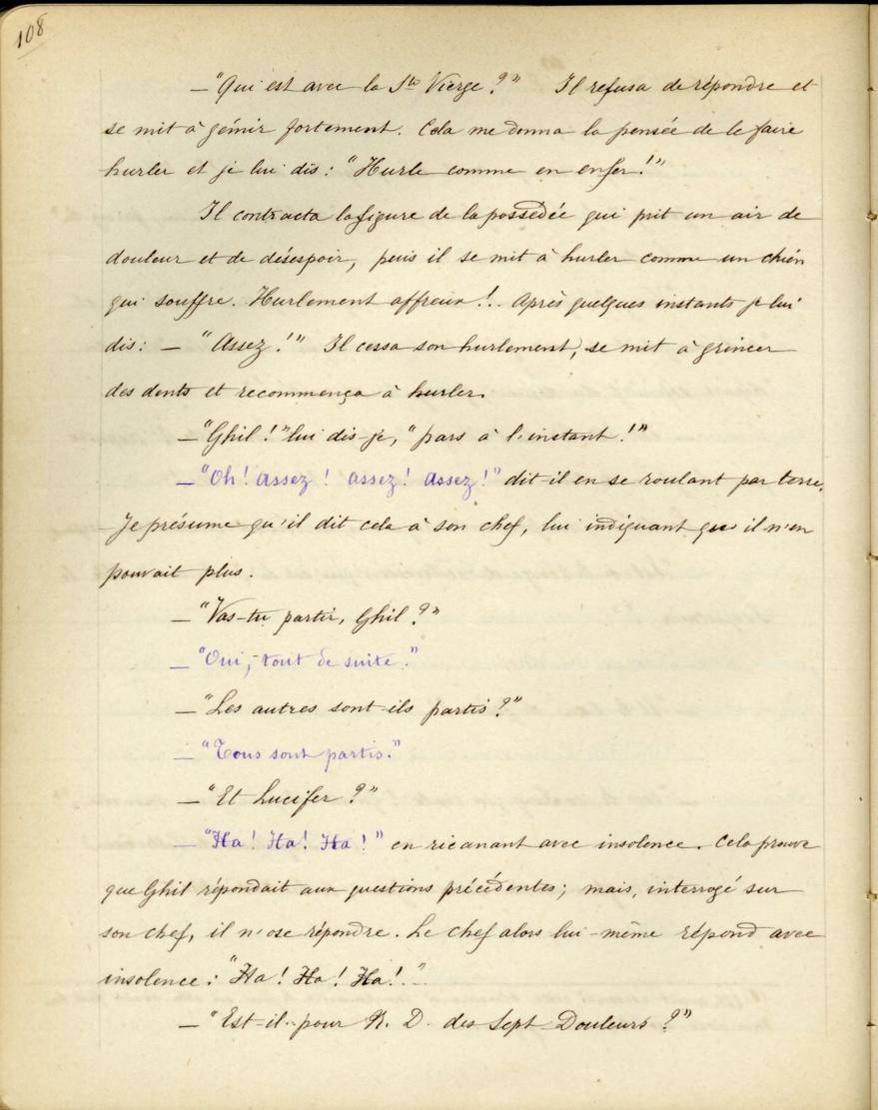 108
— "Qui est avec la Ste Vierge ?" Il refusa de répondre et
se mit à gémir fortement. Cela me donna la pensée de le faire
hurler et je lui dis : "Hurle comme en enfer !"
Il contracta la figure de la possédée qui prit un air de
douleur et de désespoir, puis il se mit à hurler comme un chien
qui souffre. Hurlement affreux !.. Après quelques instants je lui
dis : — "Assez !" Il cessa son hurlement, se mit à grincer
des dents et recommença à hurler.
— "Ghil !" lui dis-je, "pars à l'instant !"
— "Oh ! assez ! assez ! assez !" dit-il en se roulant par terre.
Je présume qu'il dit cela à son chef, lui indiquant qu'il n'en
pouvait plus.
— "Vas-tu partir, Ghil ?"
— "Oui, tout de suite."
— "Les autres sont-ils partis ?"
— "Tous sont partis."
— "Et Lucifer ?"
— "Ha ! Ha ! Ha !" en ricanant avec insolence. Cela prouve
que Ghil répondait aux questions précédentes ; mais, interrogé sur
son chef, il n'ose répondre. Le chef alors lui-même répond avec
insolence : "Ha ! Ha ! Ha !.."
— "Est-il pour N. D. des Sept Douleurs ?"